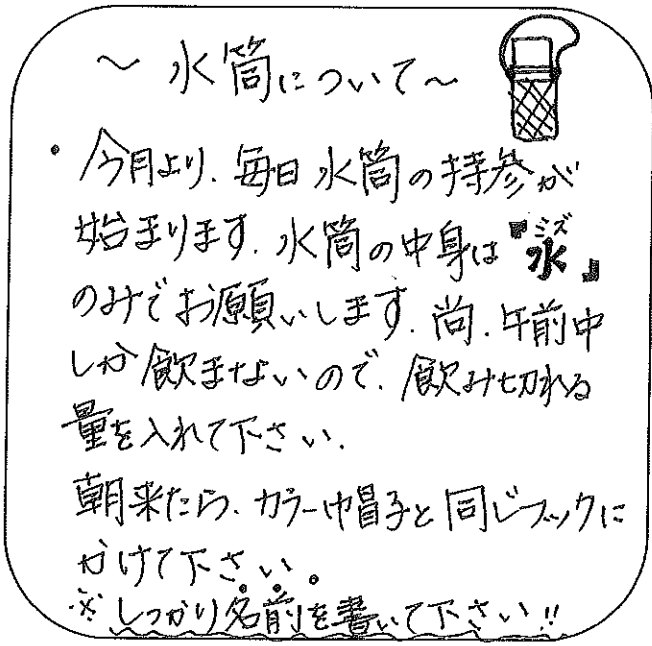 ～ 水筒について～
・今月より、毎日水筒の持参が
始まります。水筒の中身は『水』
ミズ
のみでお願いします。尚、午前中
しか飲まないので、飲み切れる
量を入れて下さい。
朝来たら、カラー帽子と同じフックに
かけて下さい。
※しっかり名前を書いて下さい!!